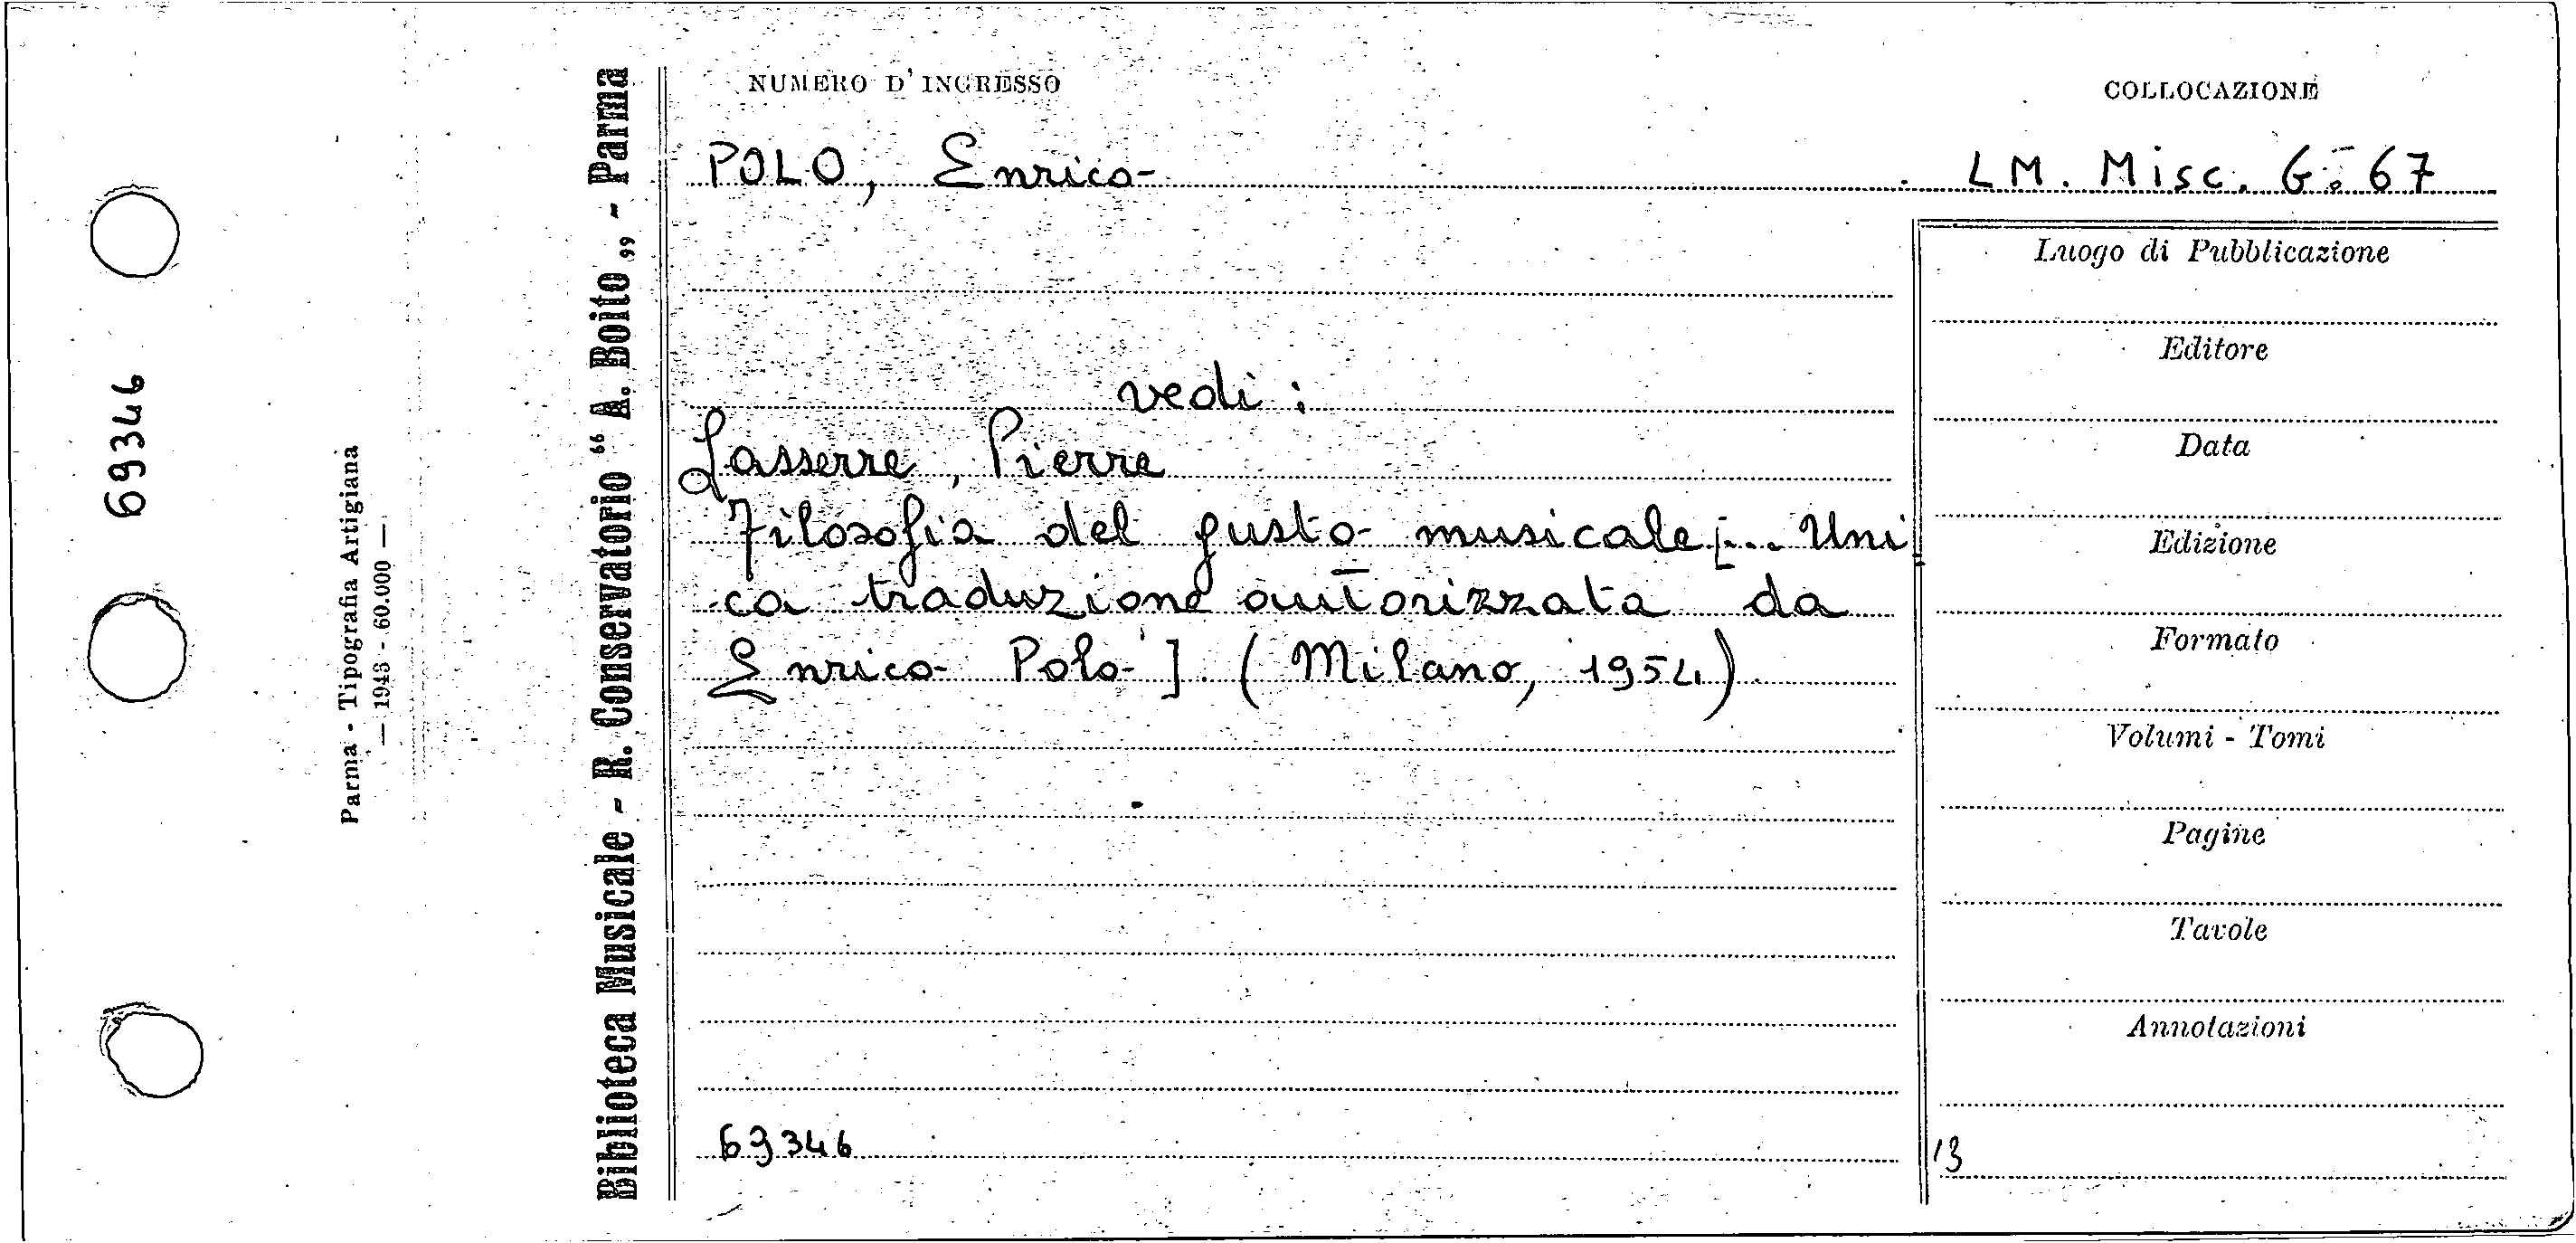 69346
Parma - Tipografia Artigiana
— 1943 - 60.000 —
Biblioteca Musicale - R. Conservatorio “ A. Boito „ - Parma
NUMERO D'INGRESSO
COLLOCAZIONE
POLO, Enrico
LM. Misc. G. 67
vedi :
Lasserre, Pierre
Filosofia del gusto musicale [... Uni
ca traduzione autorizzata da
Enrico Polo ] ( Milano, 1954)
69346
Luogo di Pubblicazione
Editore
Data
Edizione
Formato
Volumi - Tomi
Pagine
Tavole
Annotazioni
13